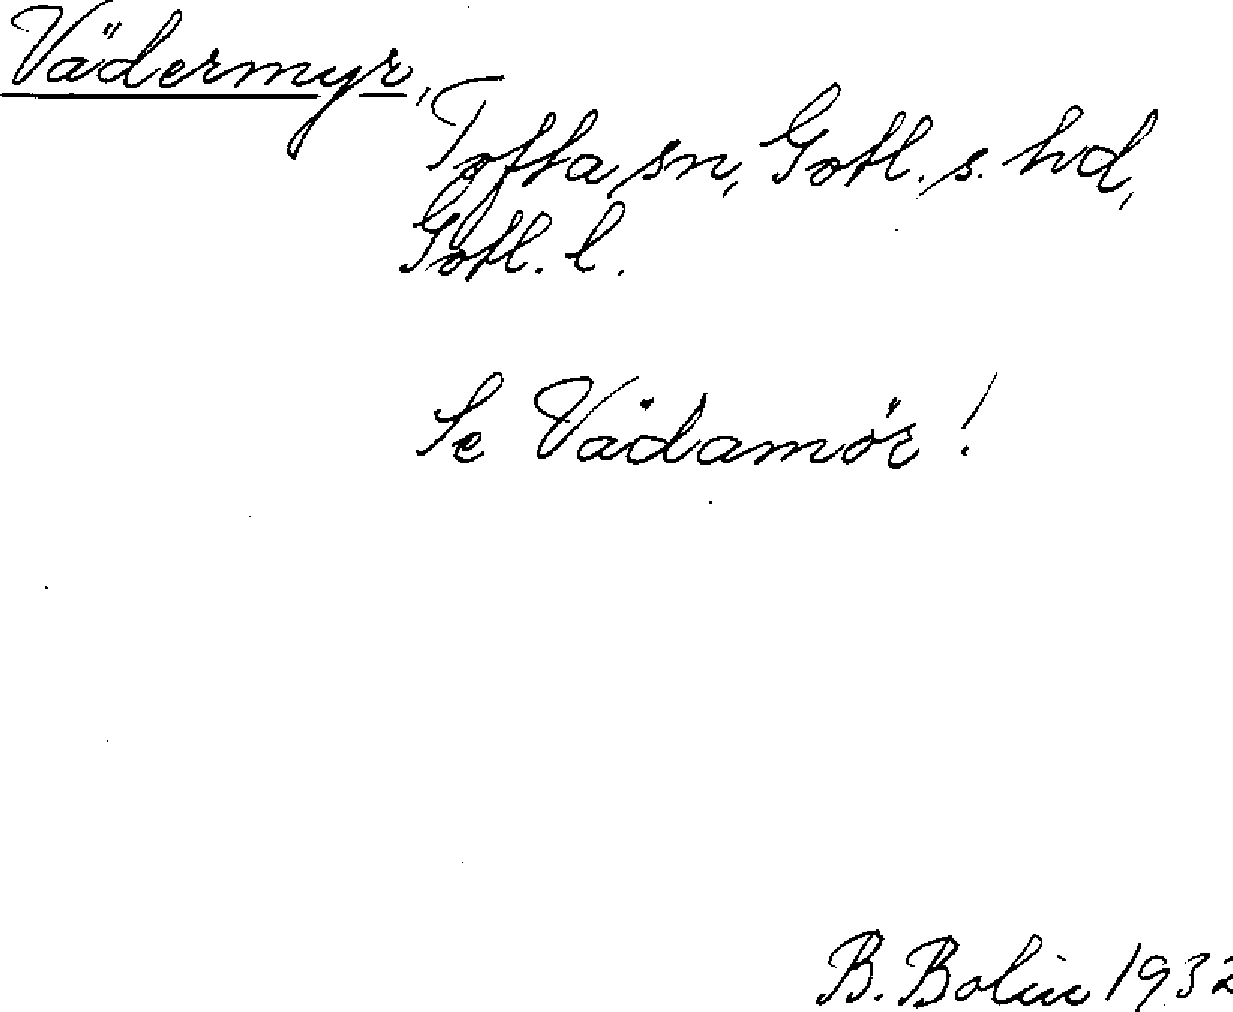 Vädermyr,
Tofta sn, Gotl. s. hd,
Gotl. l.
Se Vädamör!
B. Bolin 1932